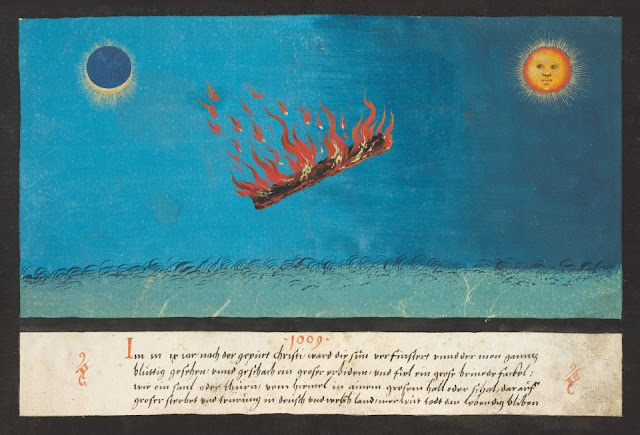 · 1009 ·
Im m ix iar nach der gepürt Christi ward die sün verfinstert vnnd der mon ganntz
blüttig gesehen vnnd geschach ein groser erdbidem vnd fiel ein grose brinede fackel:
wie ein saul oder thurn vom himel in ainem grosem hall oder schal, dar auff
groser sterbet vnd teurung in teusch vnd welsch land mer leut todt dan lebendig bliben